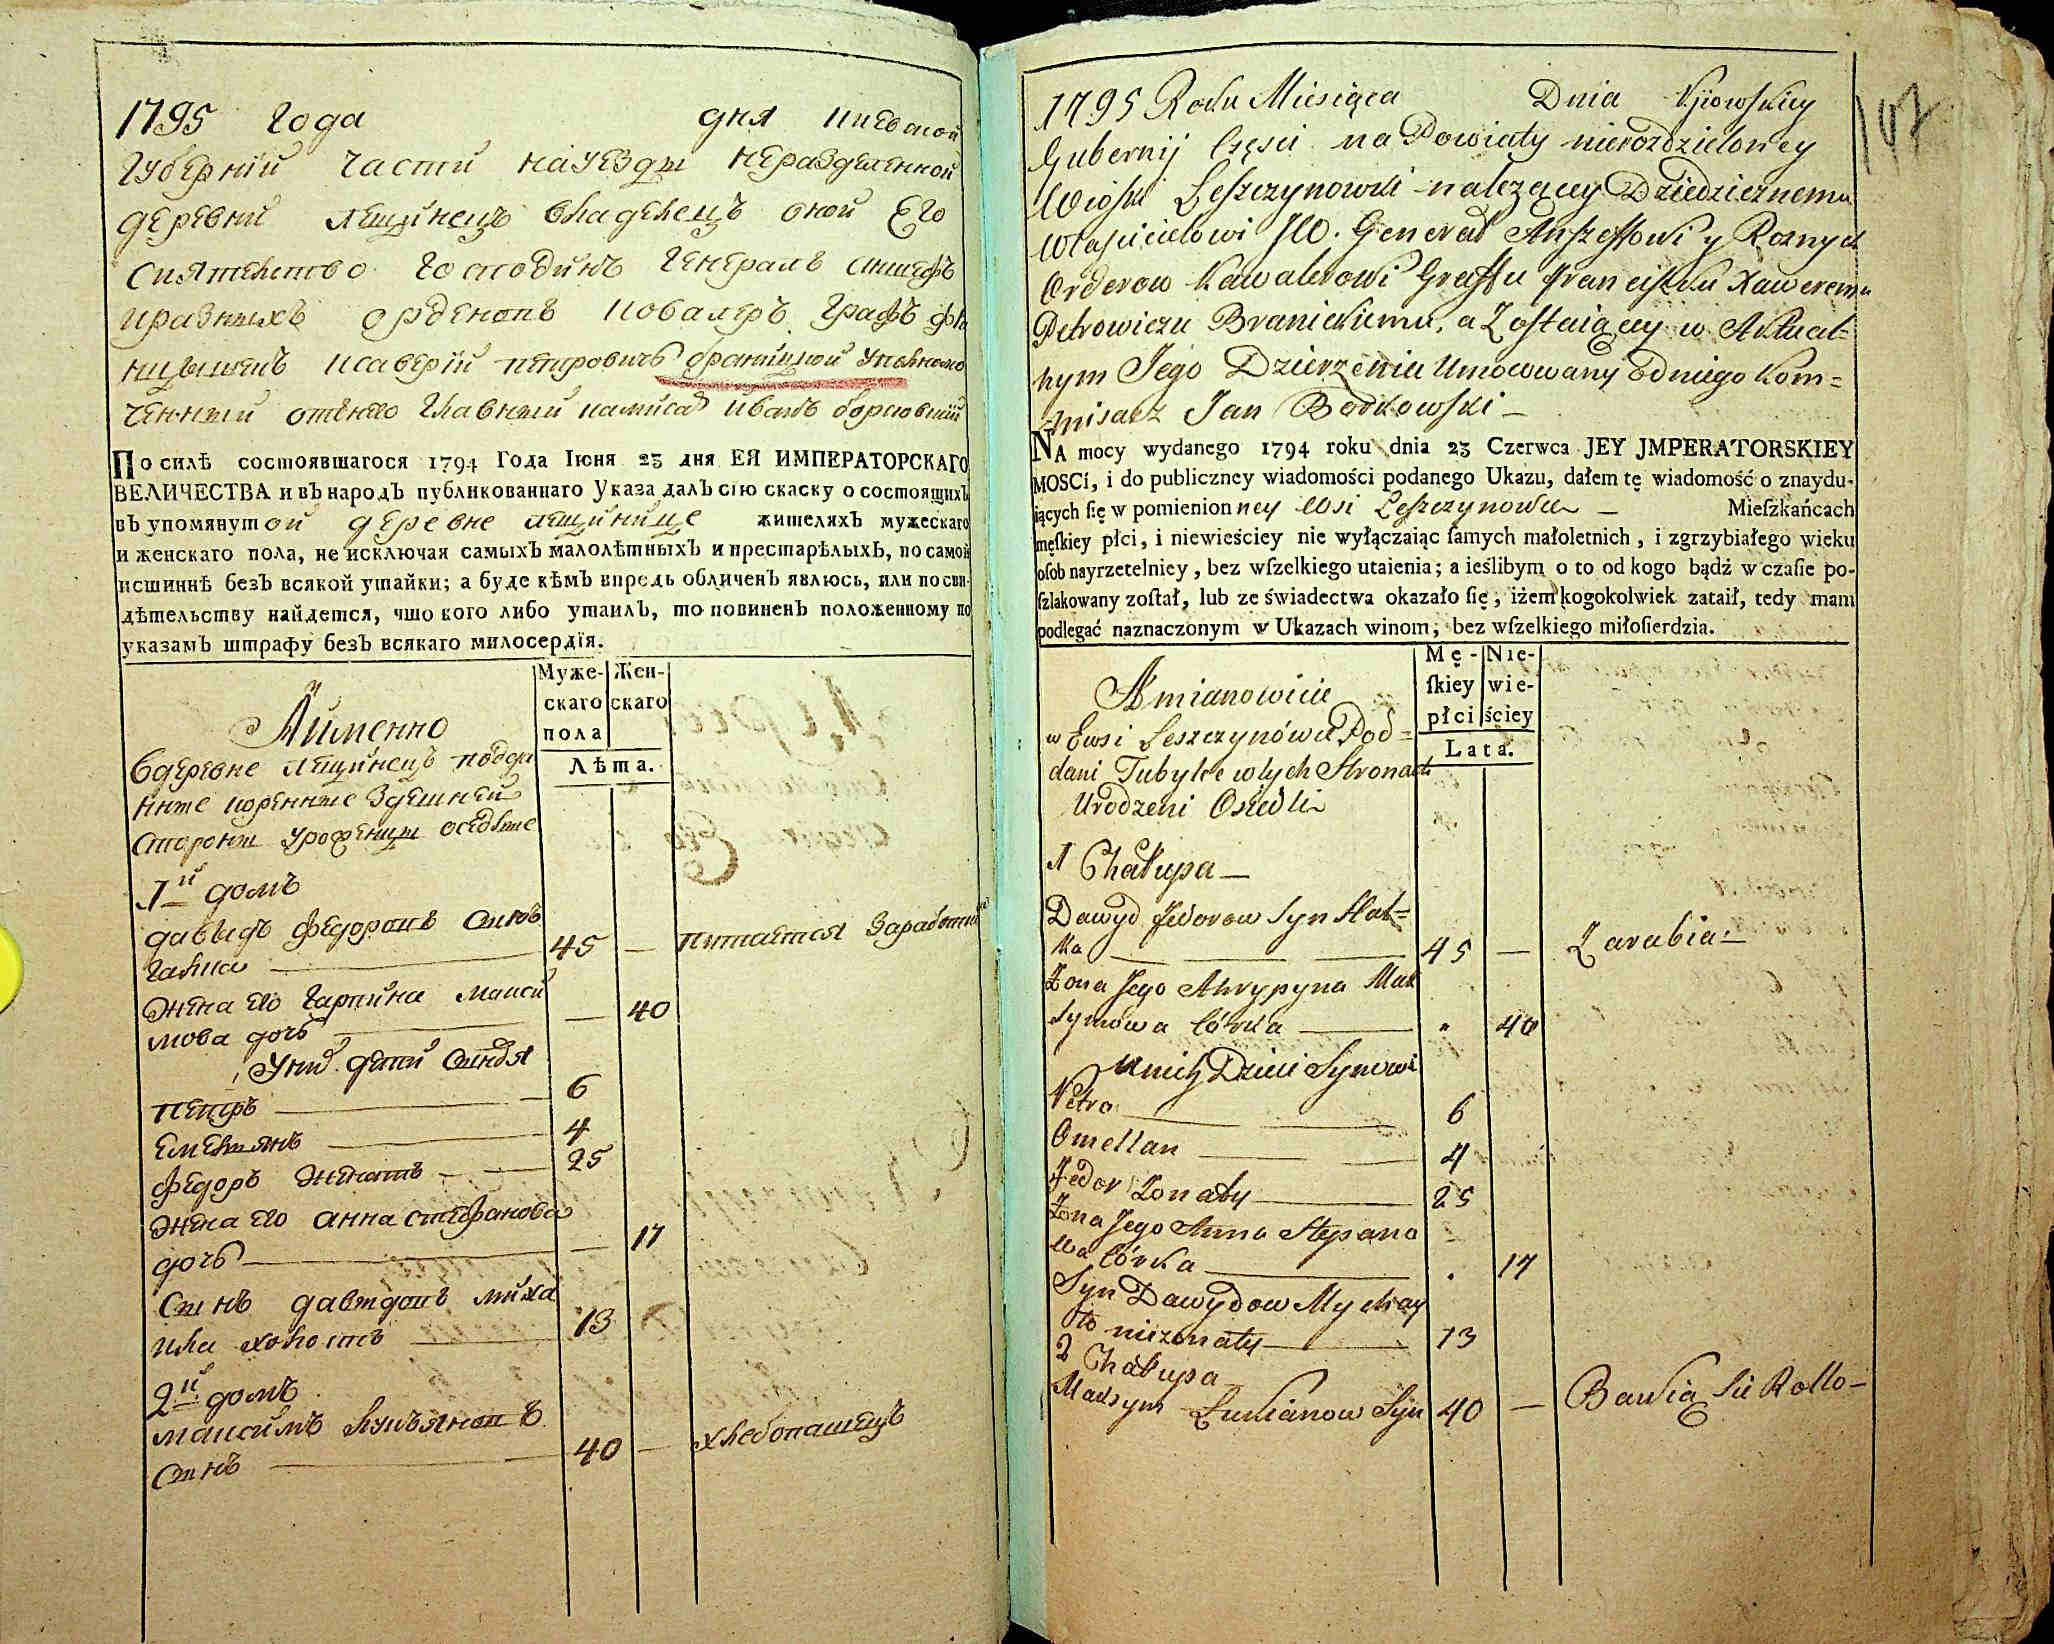 1795 Года дня Киевской
Губернии части науезды нераздѣленной
деревни Лещинецъ владелецъ оной Его
Сиятелство Господинъ Генералъ Аншефъ
иразныхъ орденовъ Кавалеръ Графъ Фра
нцышекъ Ксаверій Петровичъ Браницкой Уполномо
ченный отънего Главный камисаръ Иванъ Борковский
По силѣ состоявшагося 1794 Года Іюня 23 дня ЕЯ ИМПЕРАТОРСКАГО
ВЕЛИЧЕСТВА и въ народъ публикованнаго Указа далъ сію скаску о состоящихъ
въ упомянутой деревне Лещинице жителяхъ мужескаго
и женскаго пола, не исключая самыхъ малолѣтныхъ и престарѣлыхъ, по самой
истиннѣ безъ всякой утайки; а буде кѣмъ впредь обличенъ явлюсь, или по сви-
дѣтельству найдется, что кого либо утаилъ, то повиненъ положенному по
указамъ штрафу безъ всякаго милосердїя.
Муже- Жен-
скаго скаго
пола
Лѣта.
Аименно
Вдеревне Лещинецъ подда
нные коренные Здешней
Стороны уроженцы оседлые
1й домъ
Давыдъ Федоровъ сынъ
Галка 45 — питается Заработки
Жена его Гарпина Макси
мова дочь — 40
Униχ дети Сыновя
Петръ 6
Емельянъ 4
Федоръ Женатъ 25
Жена его Анна Стефанова
дочь — 17
Сынъ Давыдовъ Миха
ила холостъ 13
2й домъ
Максимъ Лукъяновъ
Сынъ 40 — хлебопашецъ
1795 Roku Miesiąca Dnia Kjiowskiey
Gubernij Części na Powiaty nierozdzieloney
Wioski Leszczynowki należący Dziedzicznemu
Właścicielowi JW. Generał Anszeffowi y Roznych
Orderow Kawalerowi Graffu Franciszku Xaweremu
Petrowiczu Branickiemu, a Zostaiący w Aktual=
nym Jego Dzierżeniu Umocowany Odniego Kom=
misarz Jan Borkowski —
NA mocy wydanego 1794 roku dnia 23 Czerwca JEY JMPERATORSKIEY
MOSCI, i do publiczney wiadomości podanego Ukazu, dałem tę wiadomość o znaydu-
iących ſię w pomienionney Wsi Leszczynowce — Mieſzkańcach
męſkiey płci, i niewieściey nie wyłączaiąc ſamych małoletnich, i zgrzybiałego wieku
oſob nayrzetelniey, bez wſzelkiego utaienia; a ieślibym o to od kogo bądź w czaſie po-
ſzlakowany zoſtał, lub ze świadectwa okazało ſię, iżem kogokolwiek zataił, tedy mam
podlegać naznaczonym w Ukazach winom, bez wſzelkiego miłoſierdzia.
Mę- Nie-
ſkiey wie-
płci ściey
Lata.
Amianowicie
w Ewsi Leszczynówce Pod=
dani Tubylce wtych Stronach
Urodzeni Osiedli
1 Chałupa —
Dawyd Fedorow Syn Hał=
ka 45 — Zarabia —
Żona Jego Ahrypyna Mak
symowa Córka „ 40
unich Dzieci Synowi
Petro 6
Omellan 4
Fedor Żonaty 25
Żona Jego Anna Stepano
wa Córka . 17
Syn Dawydow Mychay
ło nieżonaty 13
2 Chałupa
Maksym Łukianow Syn 40 — Bawią się Rollo—
107